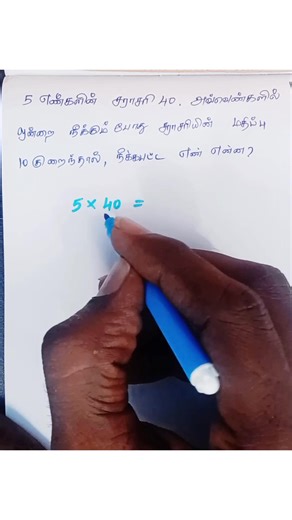 5 எண்களின் சராசரி 40. அவ்வெண்களில்
ஒன்றை நீக்கும் போது சராசரியின் மதிப்பு
10 குறைந்தால், நீக்கப்பட்ட எண் என்ன?
5 × 40 =